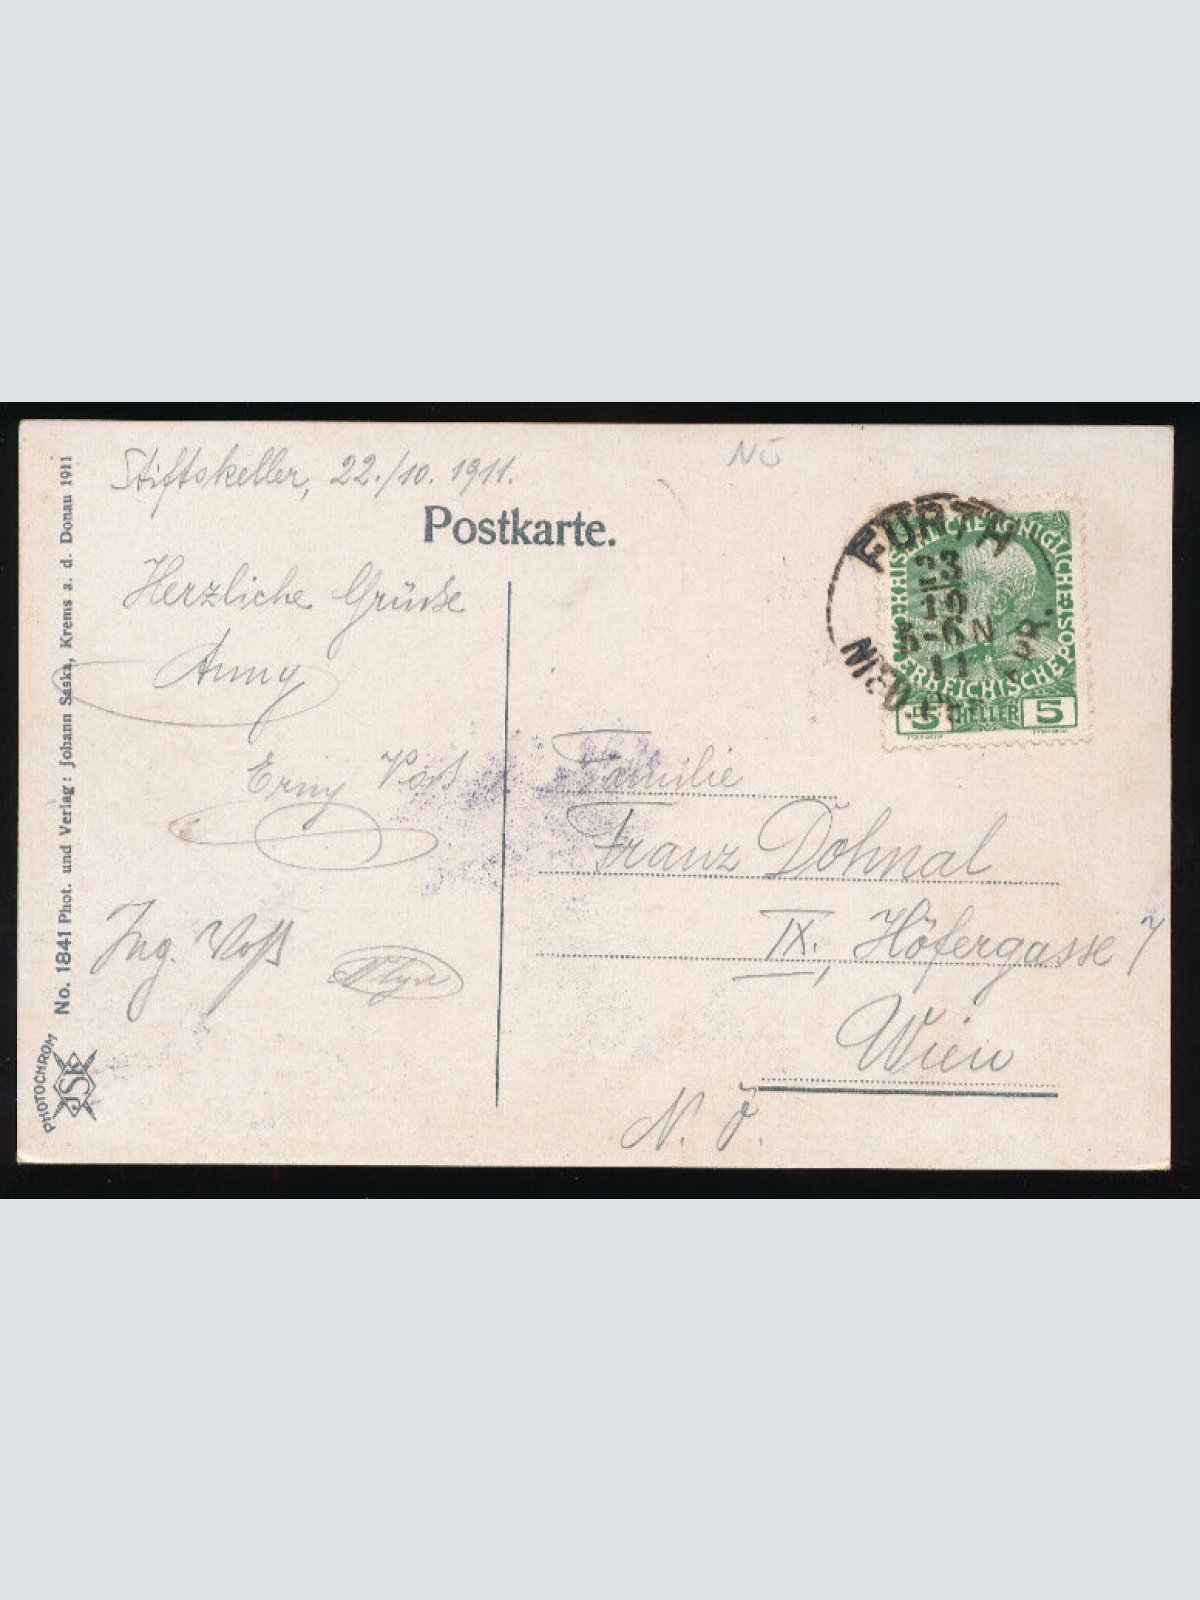 NÖ
Stiftskeller, 22./10. 1911.
Postkarte.
Herzliche Grüsse
Anny
Erny Voß
Ing. Voß
Familie
Franz Dohnal
IX., Höfergasse 7
Wien
N. Ö.
FURTH
23
10
5-6 N
11
NIED. ÖST
KAISERLICHE KÖNIGLICHE POST
ÖSTERREICHISCHE
5 HELLER 5
No. 1841 Phot. und Verlag: Johann Saska, Krems a. d. Donau 1911
PHOTOCHROM
JSK